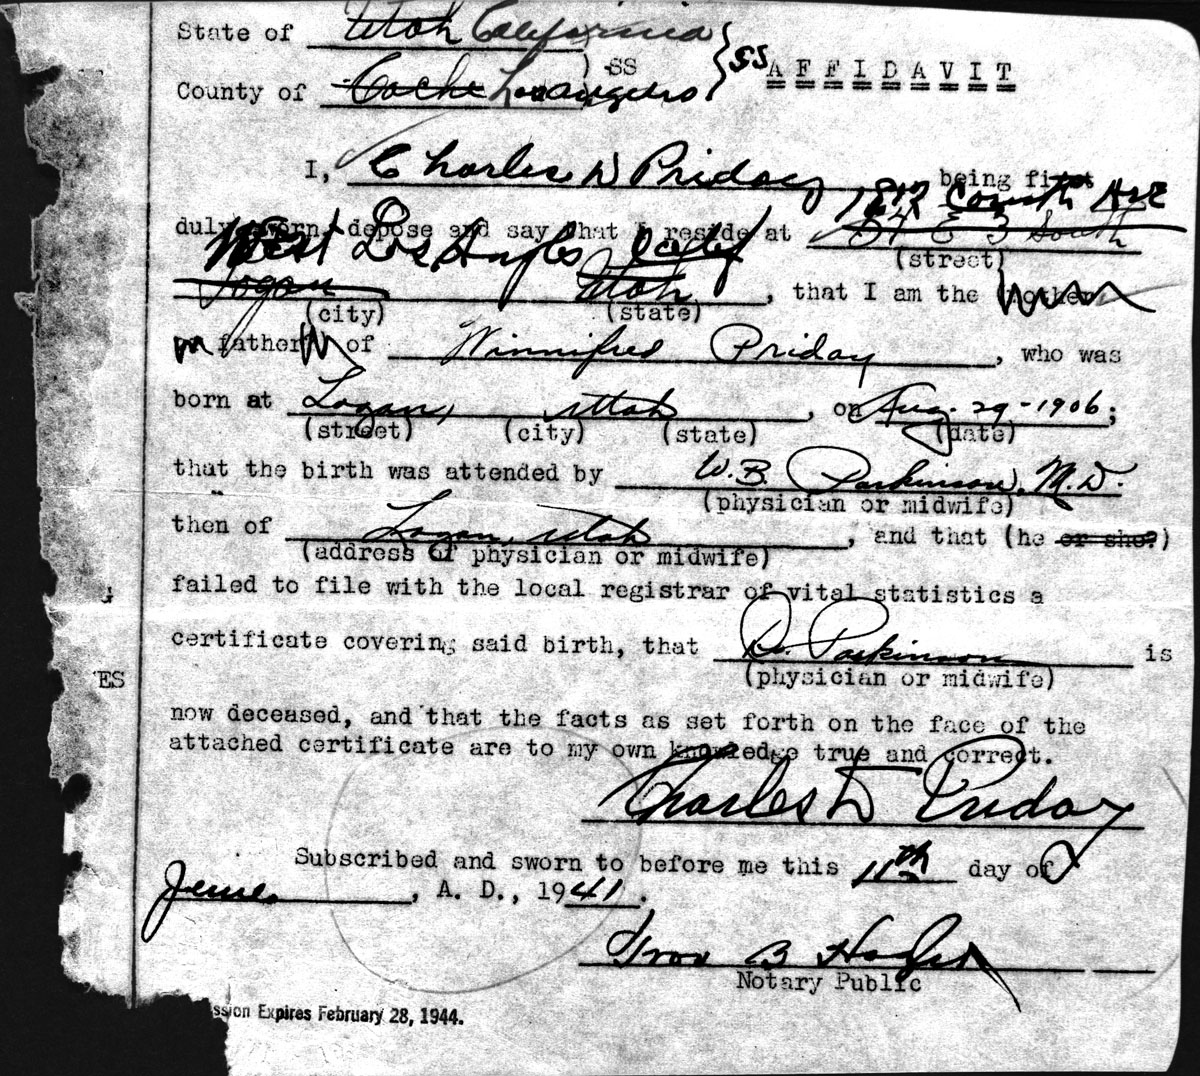 State of Utah California
County of Cache Los Angeles SS SS AFFIDAVIT
I, Charles D Priday being first
1812 Corinth Ave
duly sworn, depose and say that I reside at 54 E 3 South
West Los Angeles Calif (street)
Logan Utah, that I am the mother
(city) (state)
or father of Winnifred Priday, who was
born at Logan, Utah, on Aug. 29-1906;
(street) (city) (state) (date)
that the birth was attended by W.B. Parkinson, M.D.
(physician or midwife)
then of Logan, Utah, and that (he or she?)
(address of physician or midwife)
failed to file with the local registrar of vital statistics a
certificate covering said birth, that Dr. Parkinson is
ES (physician or midwife)
now deceased, and that the facts as set forth on the face of the
attached certificate are to my own knowledge true and correct.
Charles D Priday
Subscribed and sworn to before me this 11th day of
June, A. D., 1941.
B
Notary Public
ssion Expires February 28, 1944.